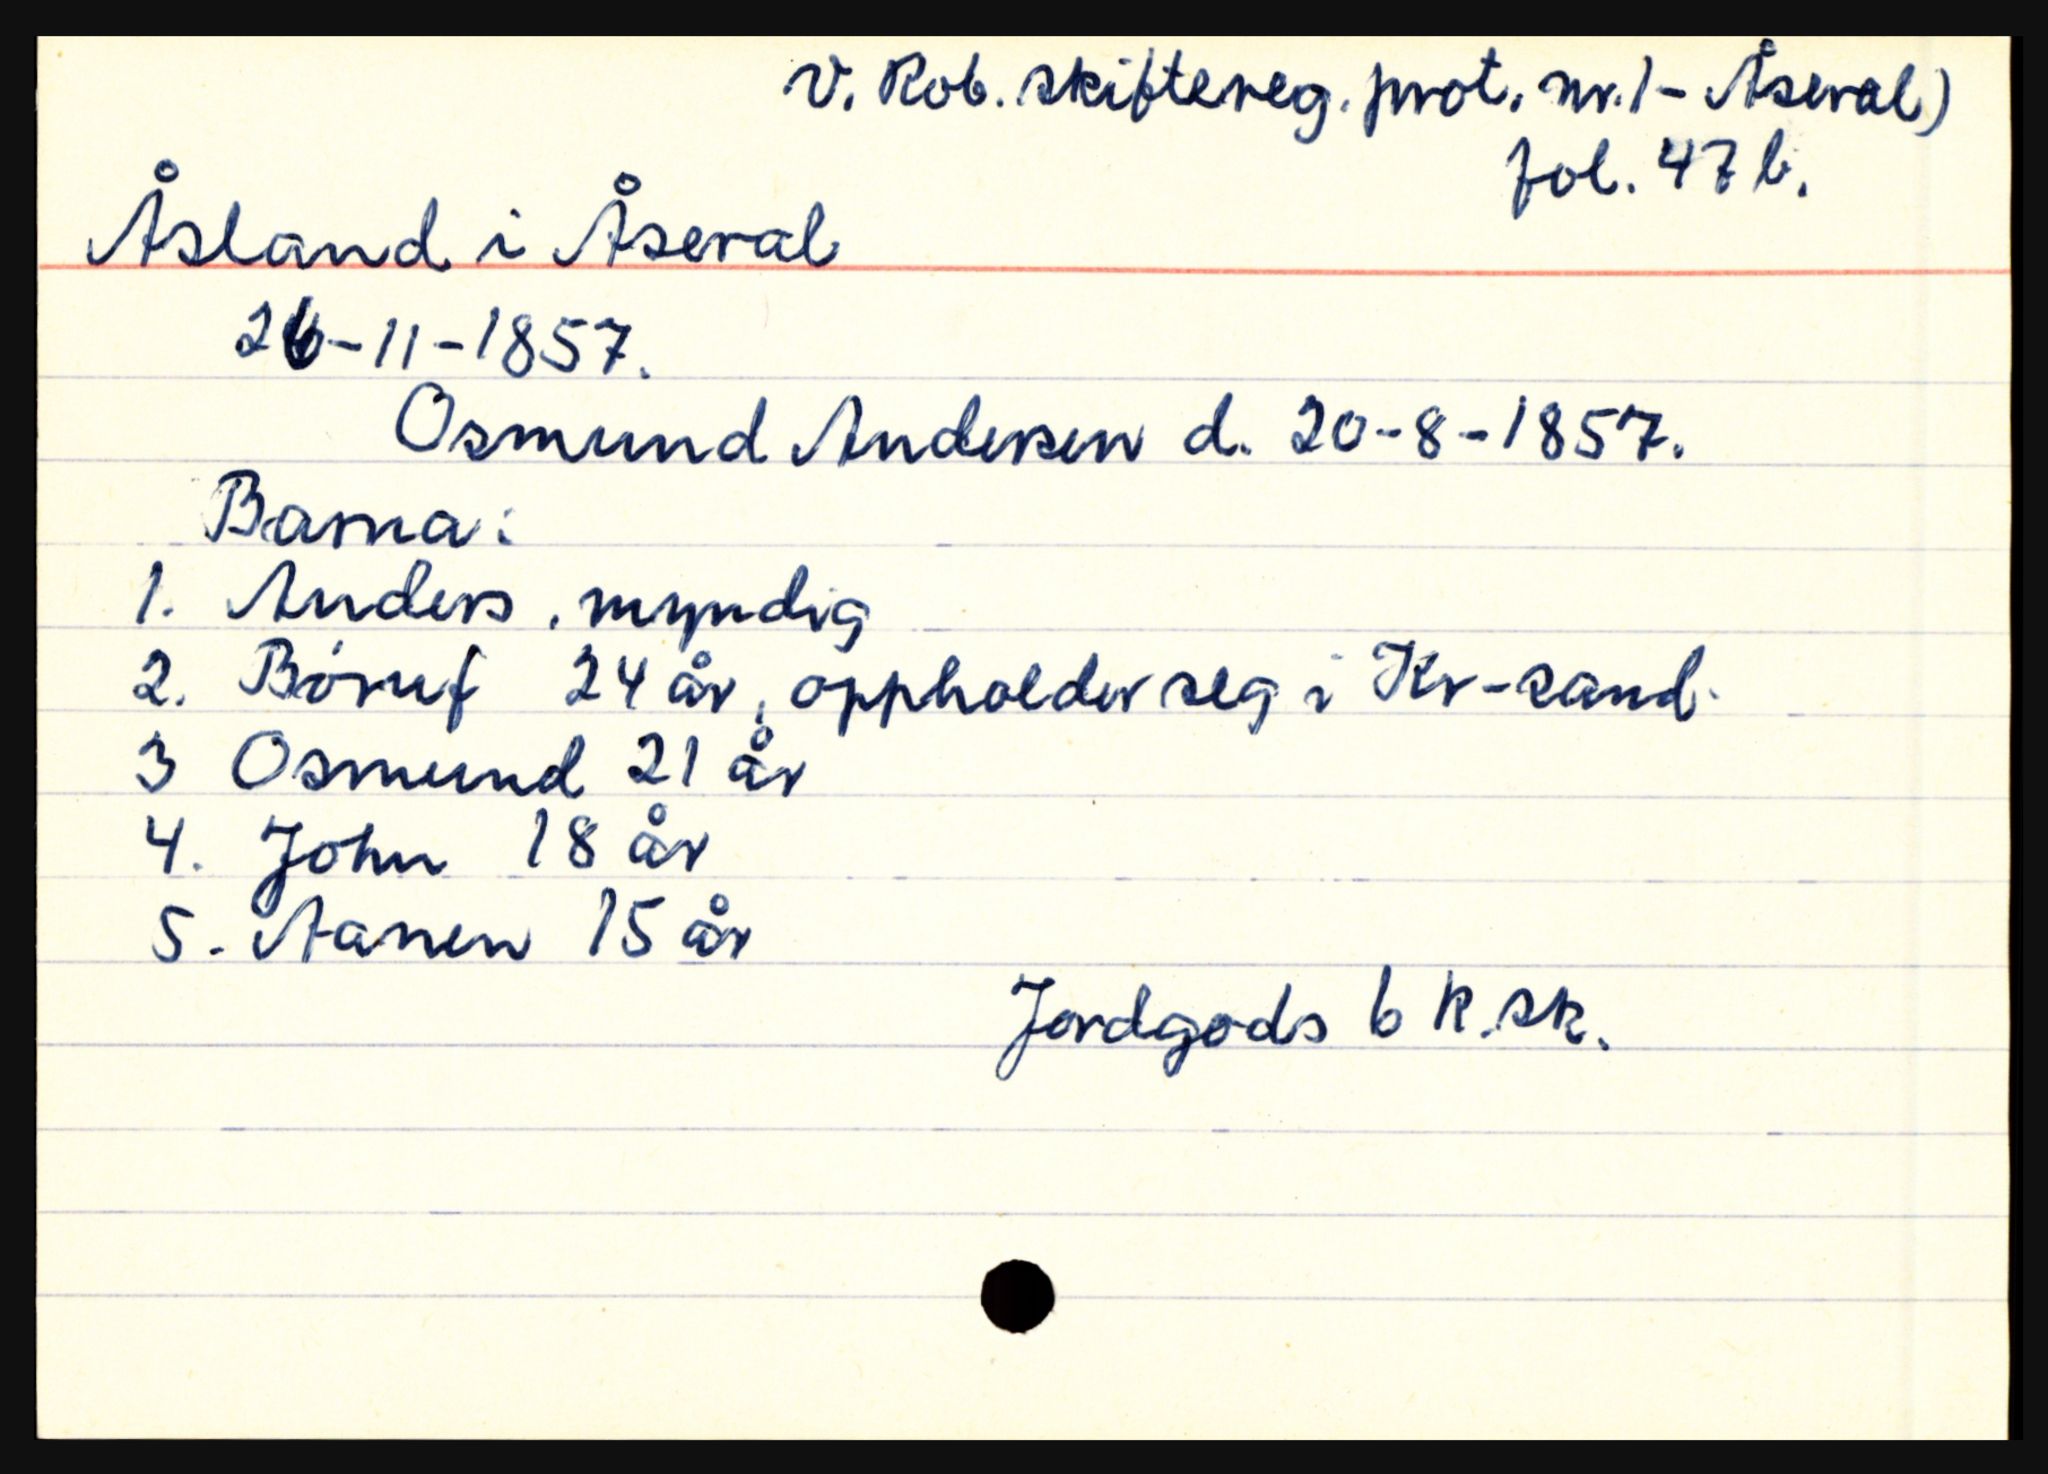 V. Rob. skiftereg. prot. nr. 1 - Åseral)
fol. 47 b.
Åsland i Åseral
26-11-1857.
Osmund Andersen d. 20-8-1857.
Barna:
1. Anders, myndig
2. Bóruf 24 år, oppholder seg i Kr-sand.
3 Osmund 21 år
4. John 18 år
5. Aanen 15 år
Jordgods 6 k.sk.